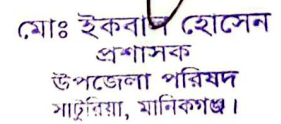 মোঃ ইকবাল হোসেন
প্রশাসক
উপজেলা পরিষদ
সাটুরিয়া, মানিকগঞ্জ।